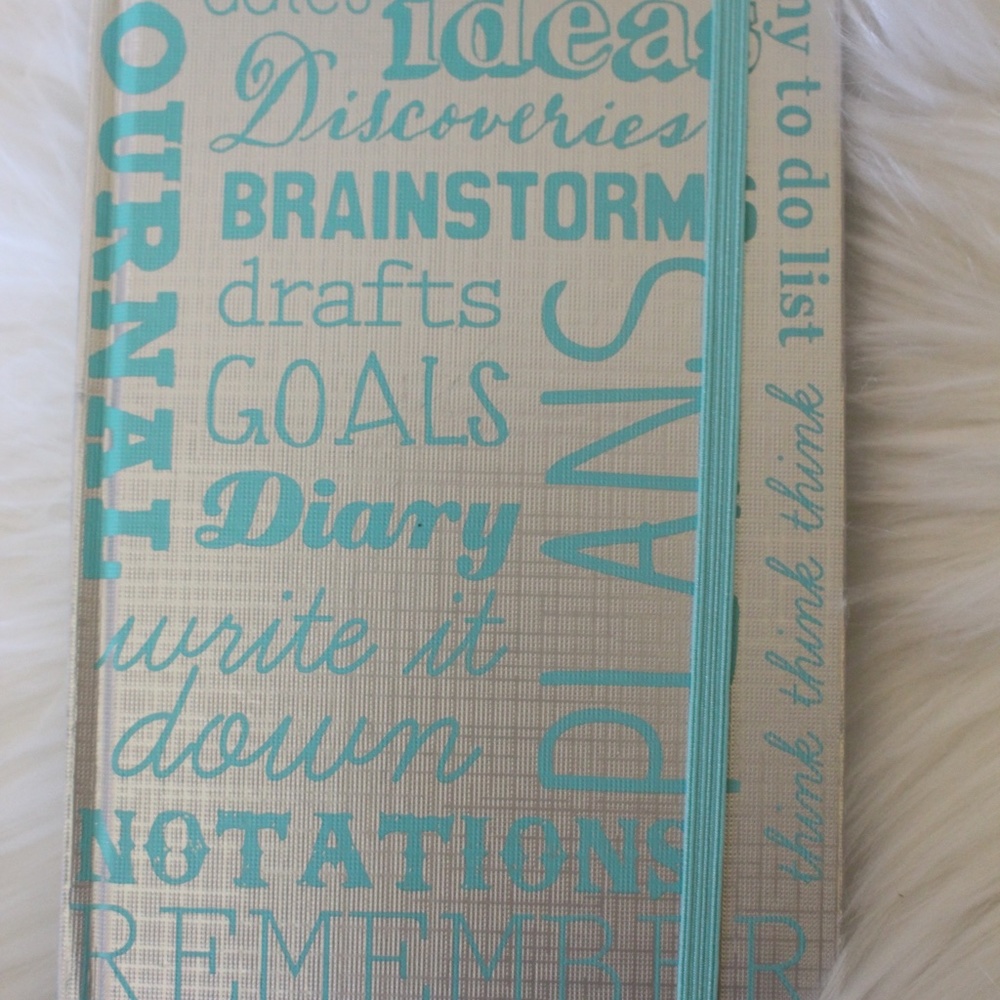 dates
ideas
Discoveries
BRAINSTORMS
drafts
GOALS
Diary
write it
down
NOTATIONS
REMEMBER
OURNAL
PLANS
my to do list
think think think